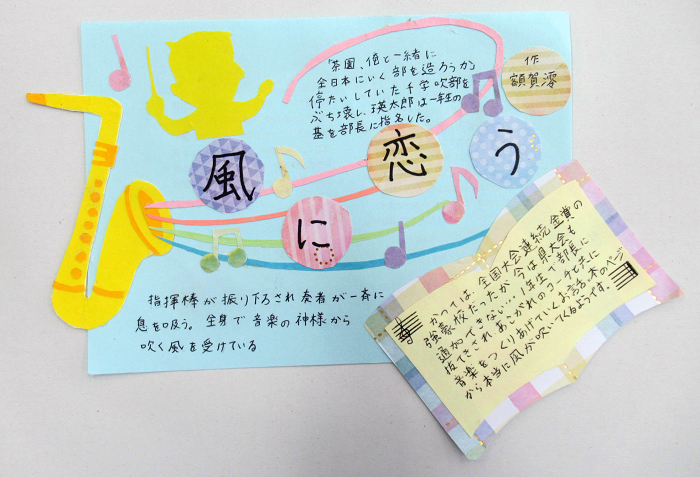 「茶園、俺と一緒に
全日本にいく部を造ろうか」
停たいしていた千学吹部を
ぶち壊し、瑛太郎は一年生の
基を部長に指名した。
作
額賀澪
風に恋う
指揮棒が振り下ろされ奏者が一斉に
息を吸う。全身で音楽の神様から
吹く風を受けている
かつては、全国大会連続金賞の
強豪校だったが今は県大会も
通過できない…。1年生で部長に
抜てきされあこがれのコーチと共に
音楽をつくりあげていくお話。本のページ
から本当に風が吹いてくるようです。